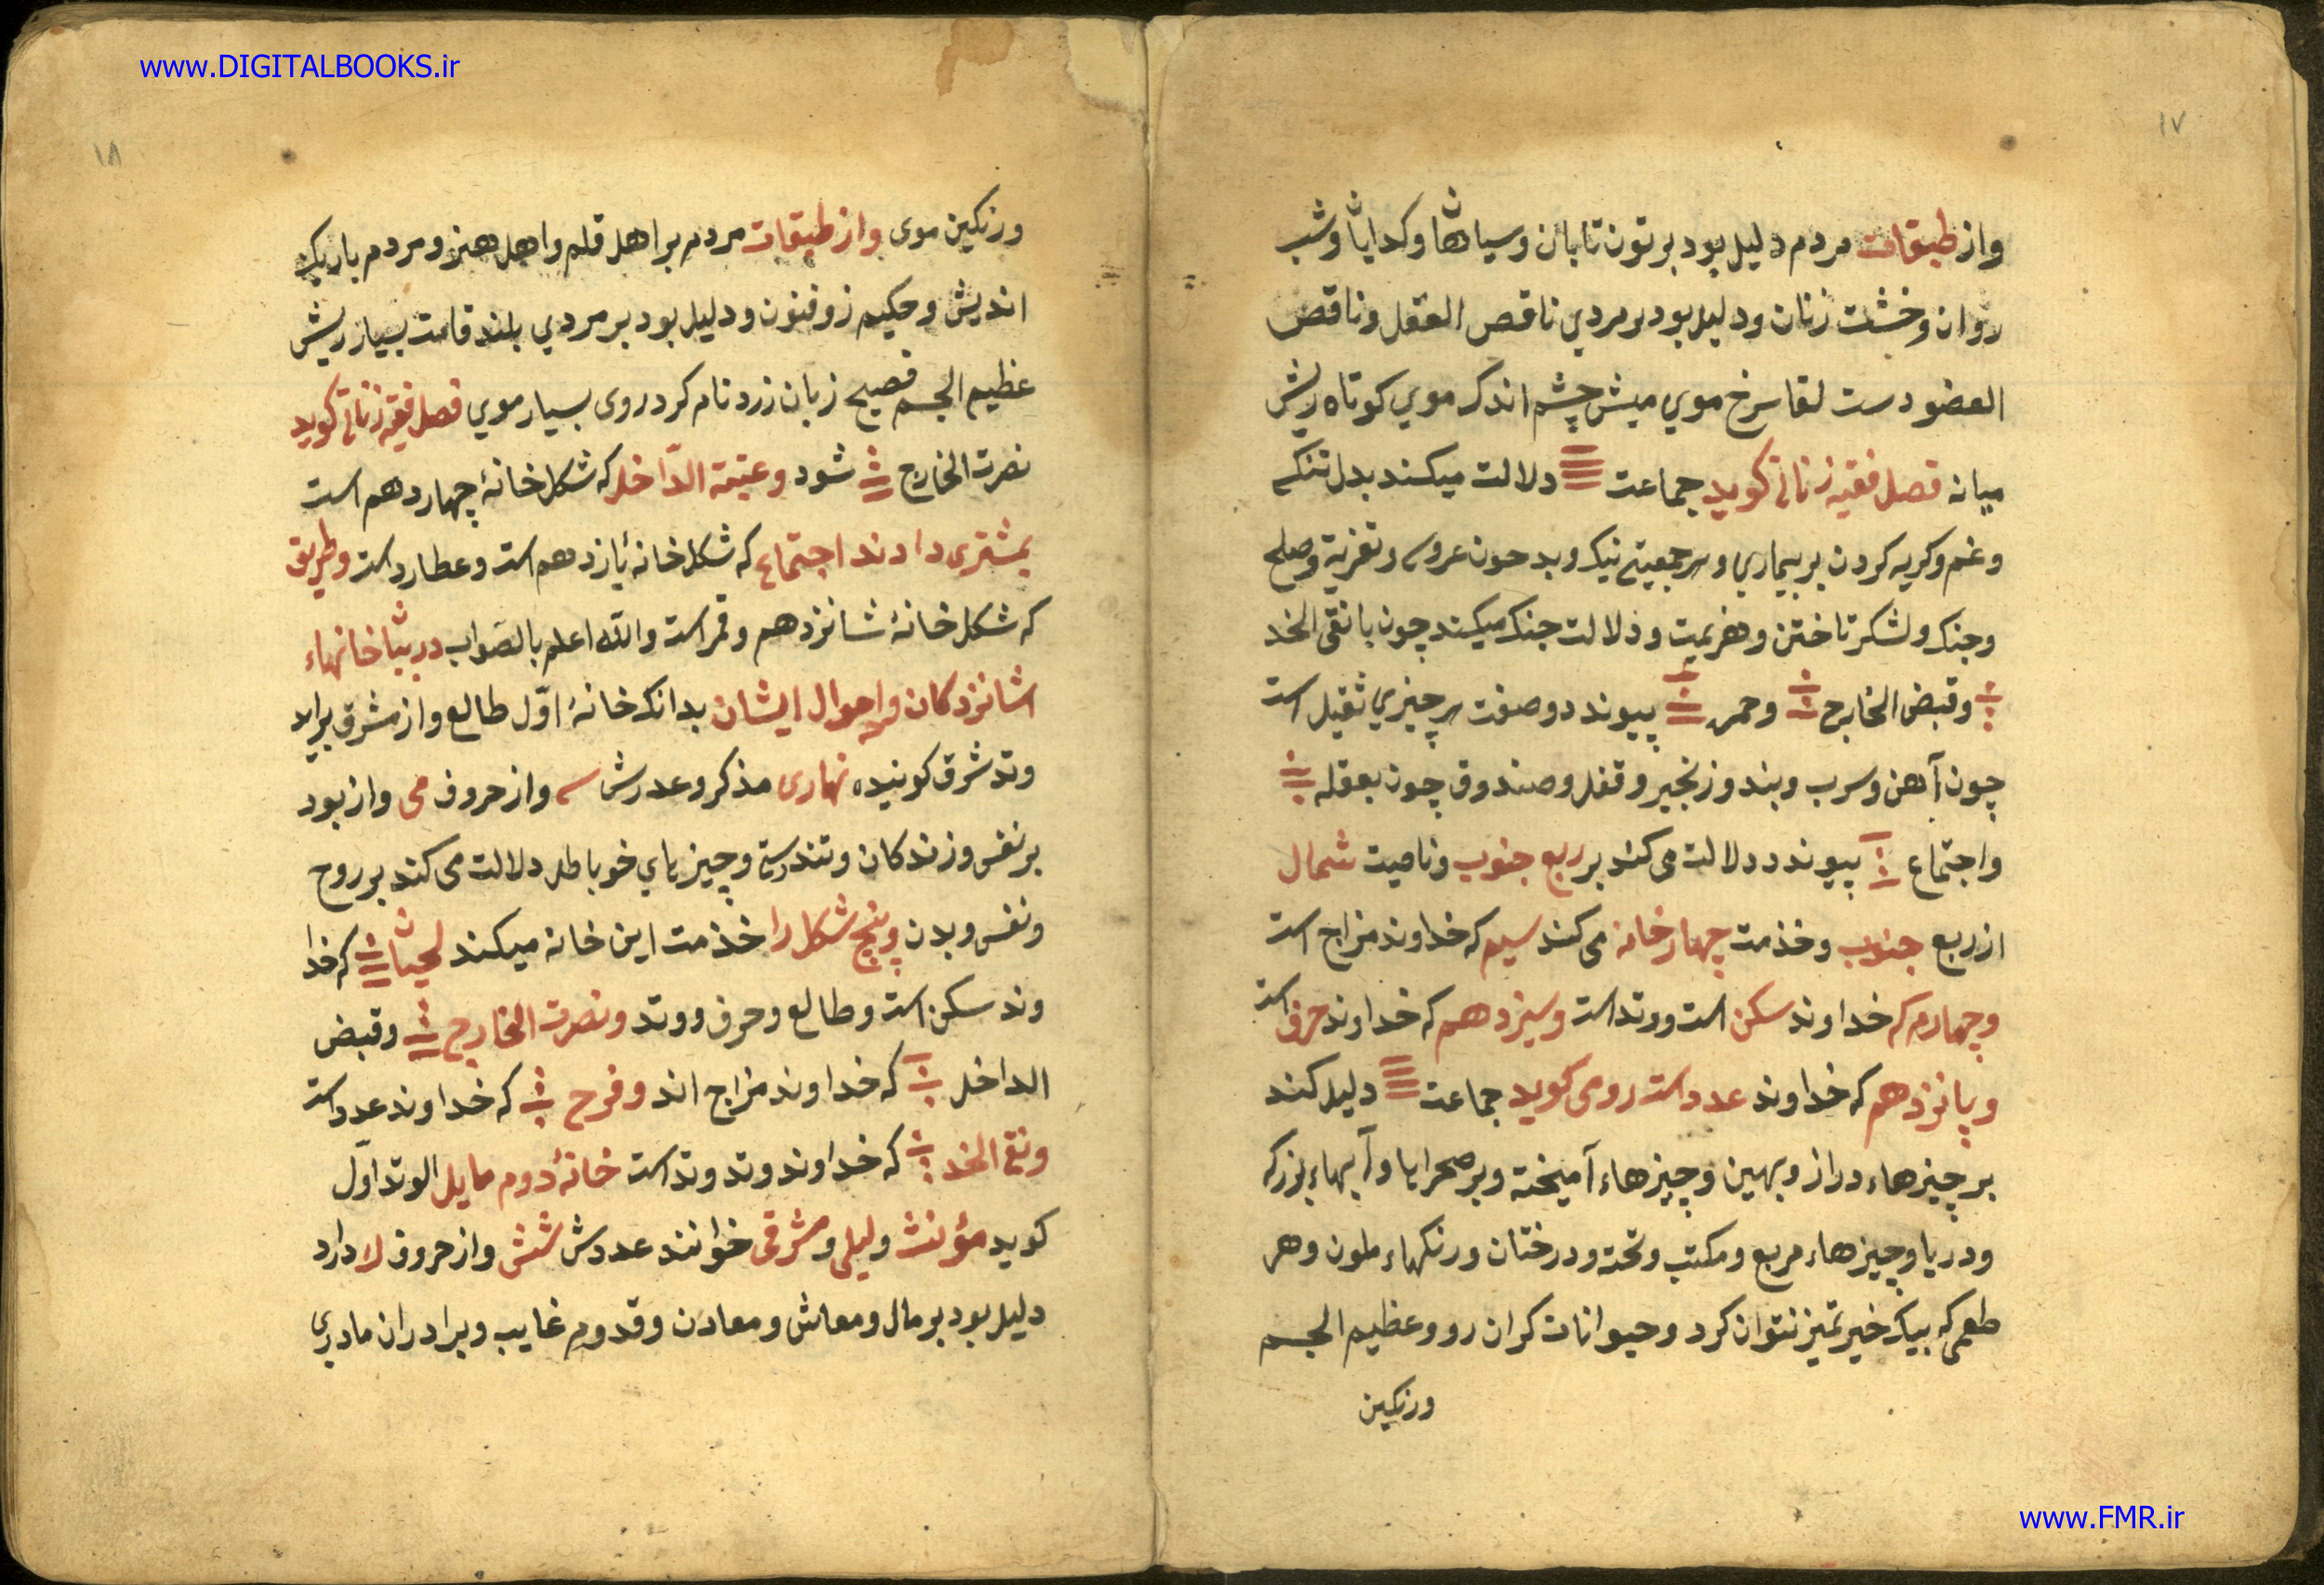 www.DIGITALBOOKS.ir
۱۷
واز طبقات مردم دلیل بود بر تون تابان وسیاهان وکدایان وشب
روان وخشت زنان ودلیل بود بر مردي ناقص العقل وناقص
العضو دست لقا سرخ موي میش چشم اندک موي کوتاه ریش
میانه فصل فقیه زناتی کوید جماعت دلالت میکند بدل تنکی
وغم وکریه کردن بر بیماري وهر جمعیتی نیک وبد چون عروسی وتعزیة وصلح
وجنک ولشکر تاختن وهزیمت ودلالت جنک میکند چون با نقی الخد
وقبض الخارج وحمره پیوندد وصفت هر چیزي ثقیل است
چون آهن وسرب وبند وزنجیر وقفل وصندوق چون بعقله
واجتماع پیوندد دلالت می کند بر ربع جنوب وناصیت شمال
از ربع جنوب وخذمت چهار خانه می کند سیم که خداوند مزاج است
وچهارم که خداوند سکن است ووتد است وسیزدهم که خداوند حرف است
وپانزدهم که خداوند عدد است رومی کوید جماعت دلیل کند
بر چیزهاء دراز وپهین وچیزهاء آمیخته وبر صحرایا وآبهاء بزرک
ودریا وچیزهاء مربع ومکتب وتخته ودرختان ورنکهاء ملون وهر
طعمی که بیک خیر تمیز نتوان کرد وحیوانات کران رو وعظیم الجسم
ورنکین
۱۸
ورنکین موی واز طبقات مردم بر اهل قلم واهل هنر ومردم باریک
اندیش وحکیم زوفنون ودلیل بود بر مردي بلند قامت بسیار ریش
عظیم الجسم فصیح زبان زرد نام کرد روی بسیار موي فصل فقیه زناتی کوید
نصرت الخارج شود وعتبة الدّاخل که شکل خانهٔ چهاردهم است
بمشتری دادند اجتماع که شکل خانهٔ یازدهم است وعطارد است وطریق
که شکل خانهٔ شانزدهم وقمر است والله اعلم بالصّواب در خانهاء
شانزدکان واحوال ایشان بدانک خانهٔ اوّل طالع واز مشرق براید
وتد شرق کونیده نهاری مذکر وعدرش واز حروف می واز بود
بر نفس وزندکان وتندرستی وچیزیاي خوباطر دلالت می کند بر روح
ونفس وبدن وپنج شکل را خذمت این خانه میکند لحیان که خدا
وند سکن است وطالع وحرف ووتد ونصرت الخارج وقبض
الداخل که خداوند مزاج اند وفرح که خداوند عدد است
ونقی الخد که خداوند وتد وتد است خانهٔ دوم مایل الوتد اوّل
کوید مؤنث ولیلی ومشرقی خوانند عددش شش واز حروف لا دارد
دلیل بود بر مال ومعاش ومعادن وقدوم غایب وبرادران مادری
www.FMR.ir